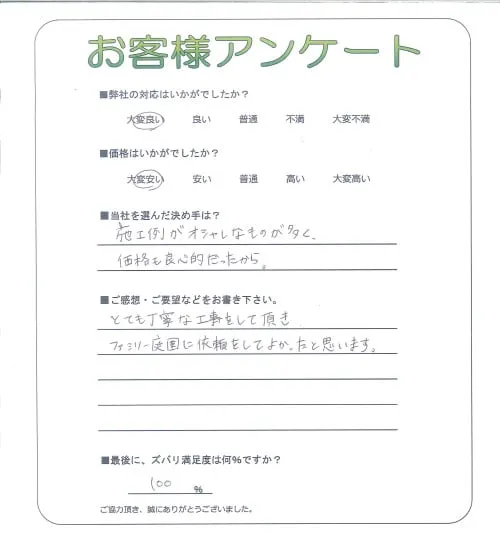 お客様アンケート
■弊社の対応はいかがでしたか？
大変良い 良い 普通 不満 大変不満
■価格はいかがでしたか？
大変安い 安い 普通 高い 大変高い
■当社を選んだ決め手は？
施工例がオシャレなものが多く、
価格も良心的だったから。
■ご感想・ご要望などをお書き下さい。
とても丁寧な工事をして頂き
ファミリー庭園に依頼をしてよかったと思います。
■最後に、ズバリ満足度は何%ですか？
100 %
ご協力頂き、誠にありがとうございました。